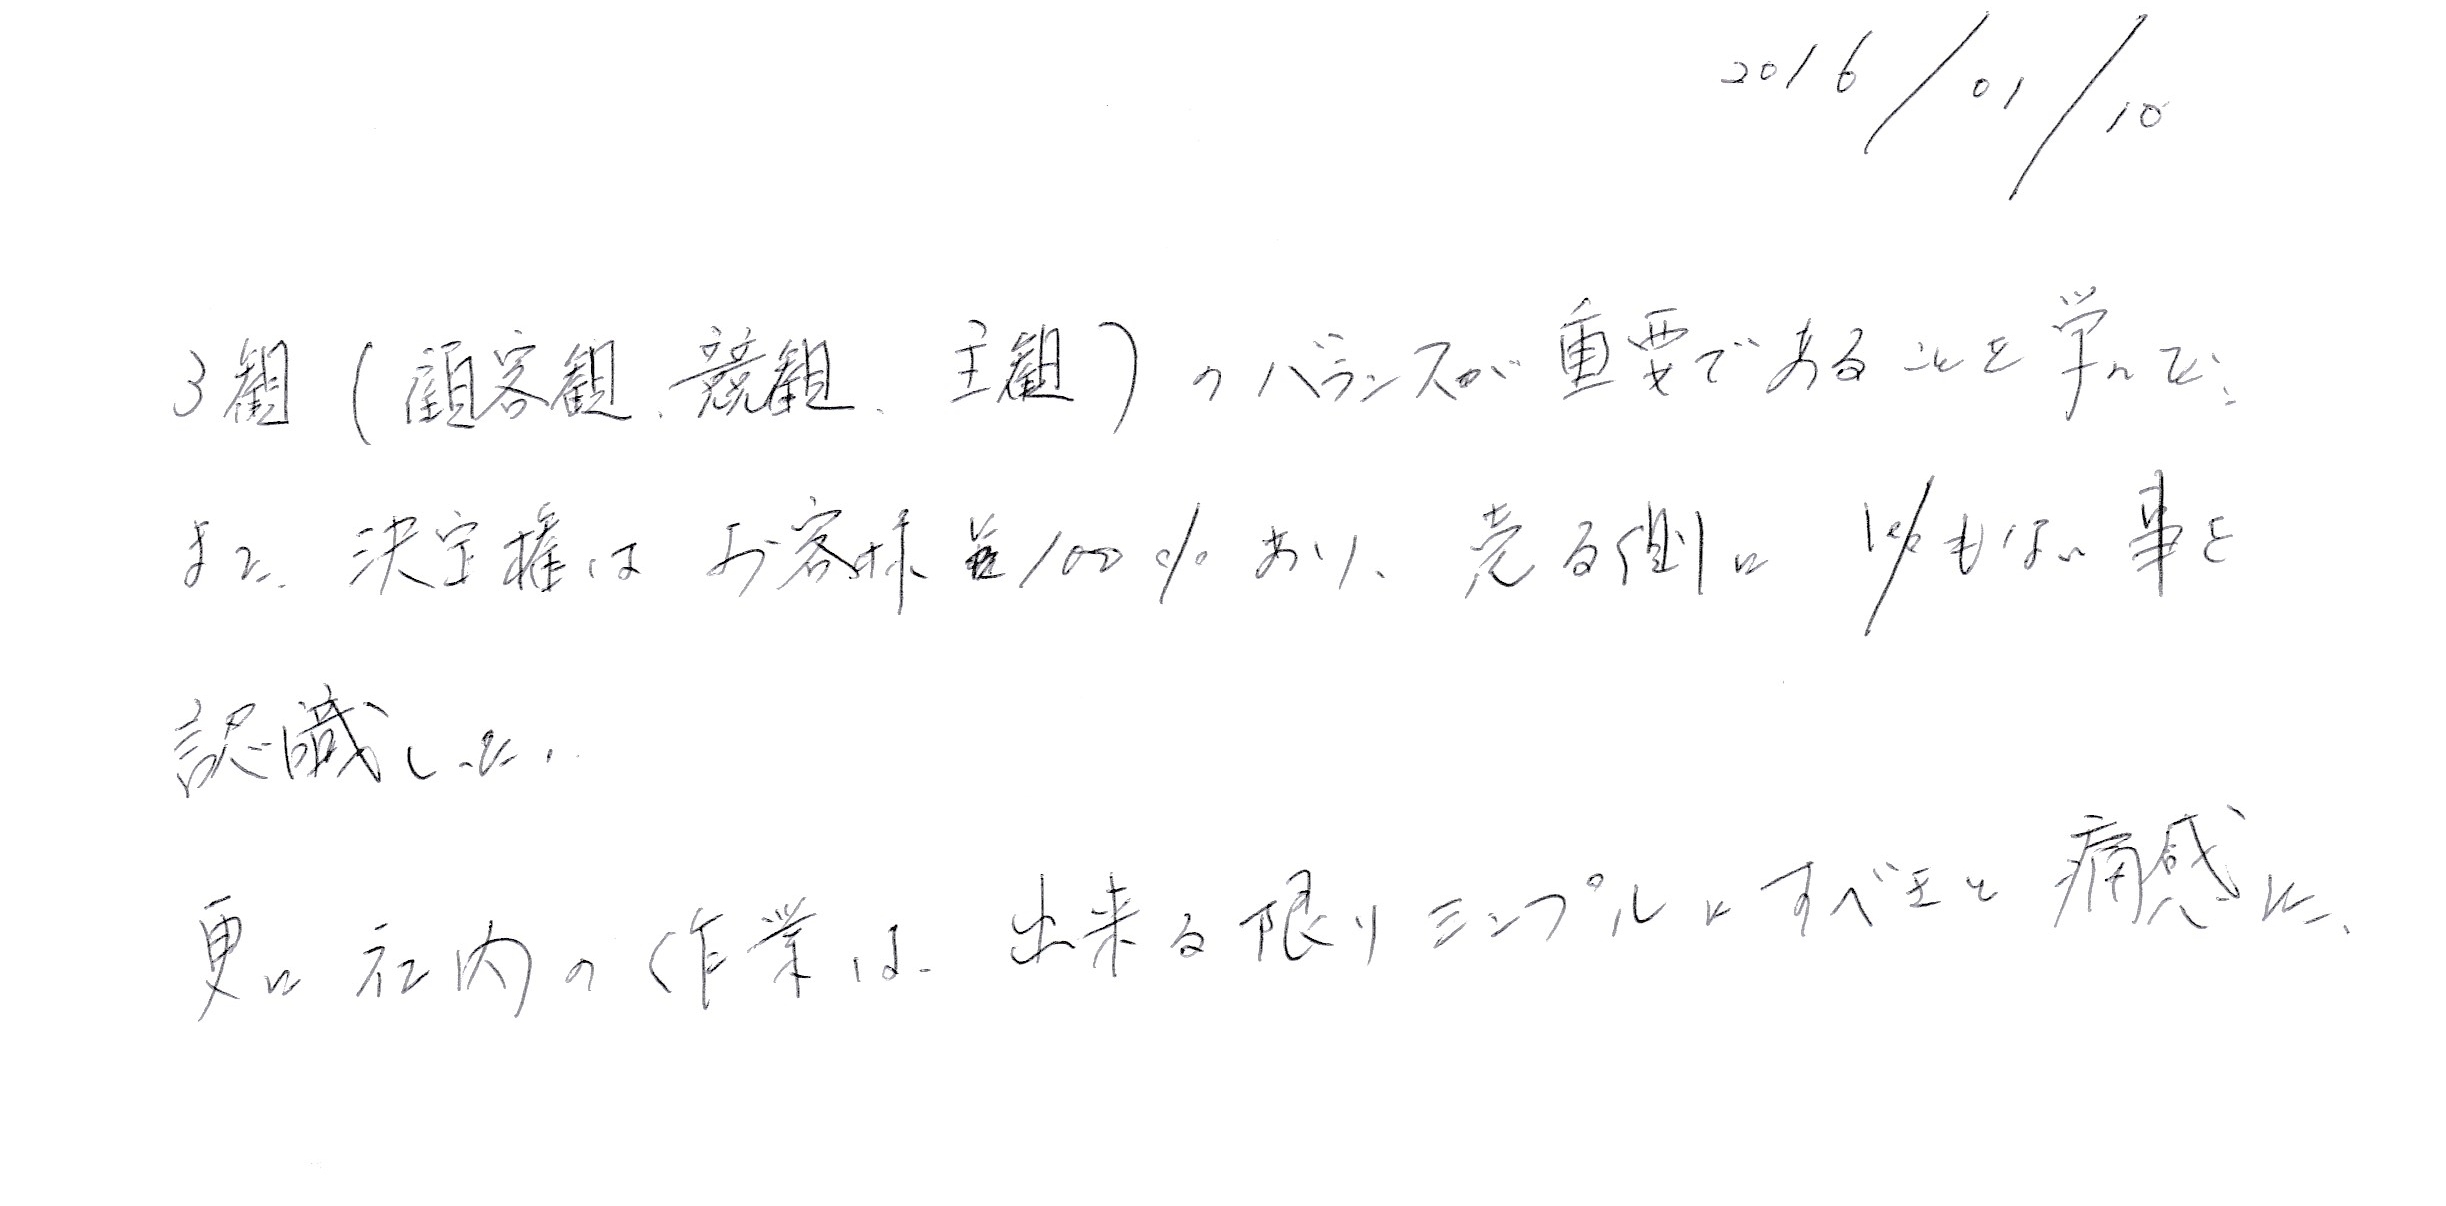 2016/01/10
3観(顧客観、競観、主観)のバランスが重要であることを学んだ。
また、決定権はお客様に100%あり、売る側に1%もない事を
認識した。
更に社内の作業は、出来る限りシンプルにすべきと痛感した。